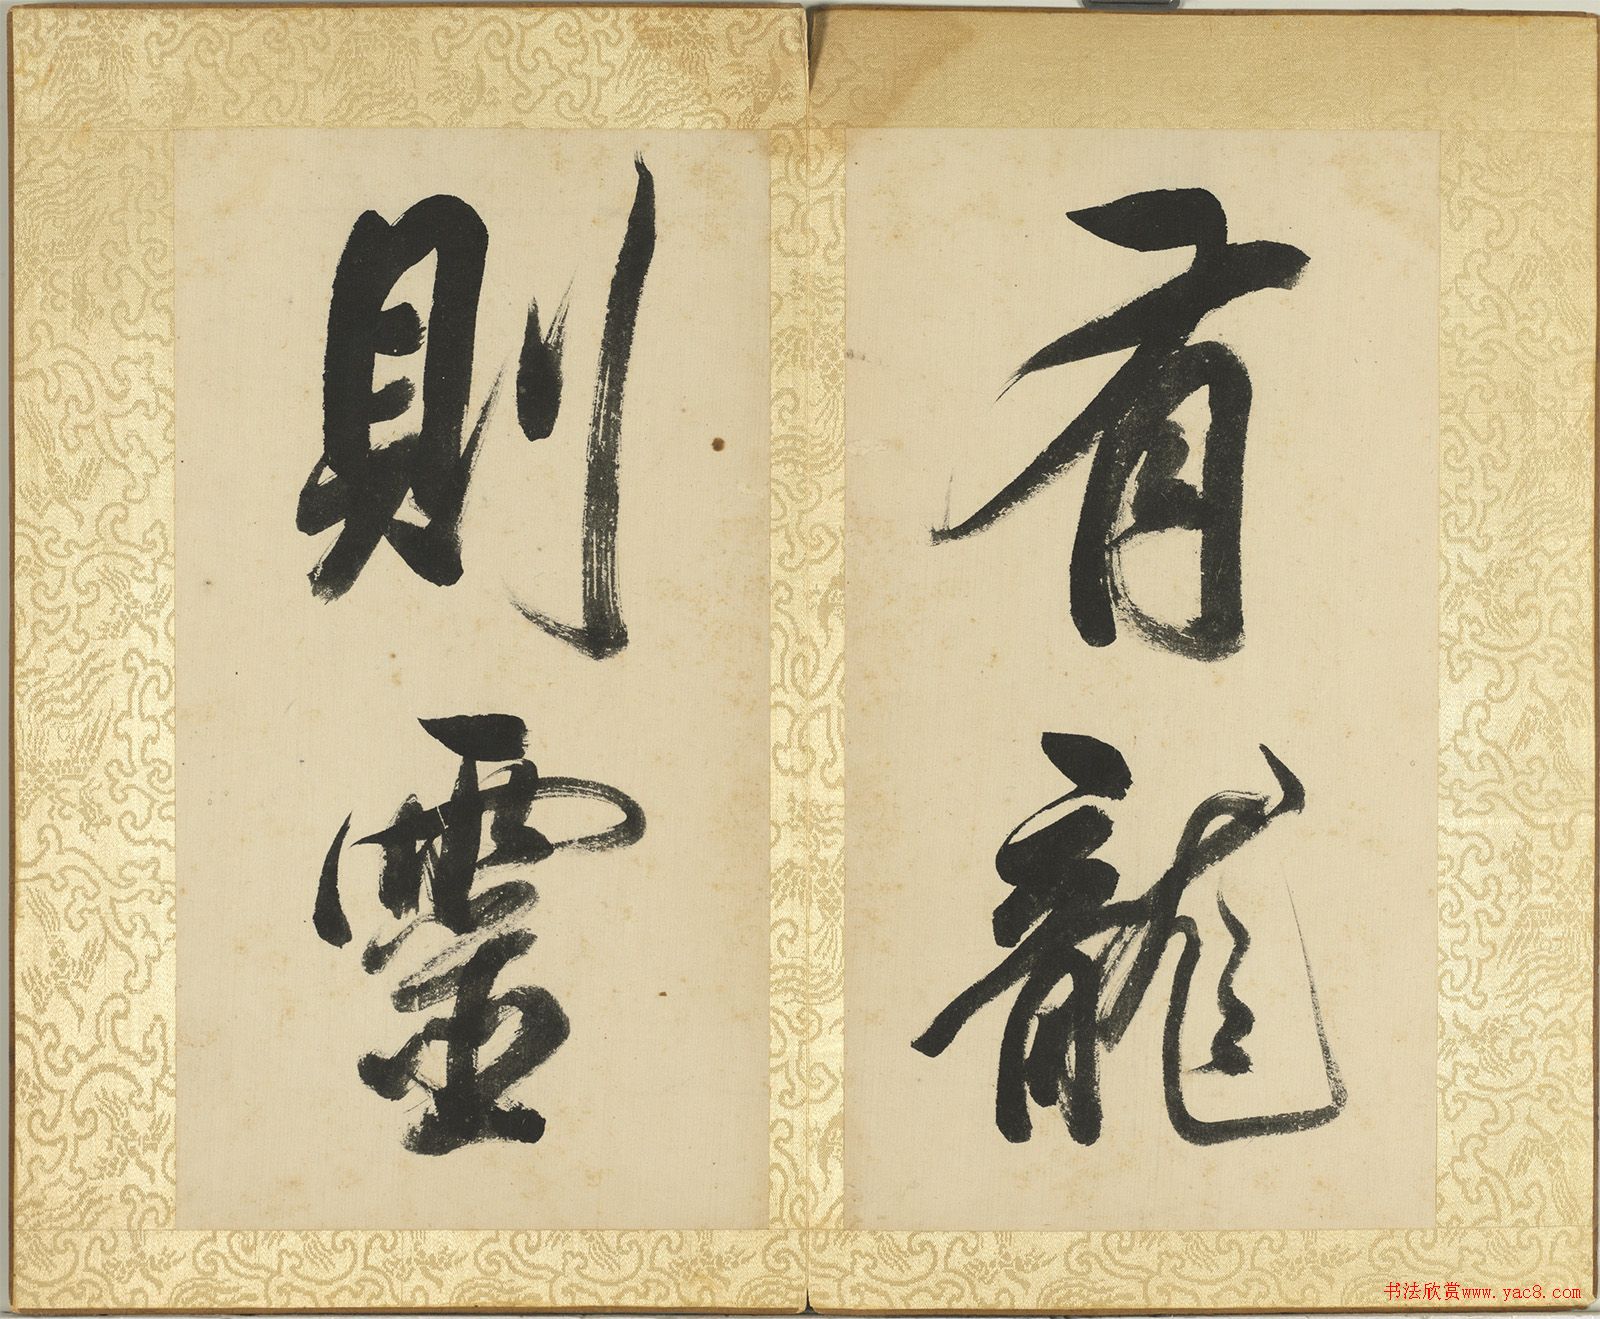 有龍
則靈
书法欣赏www.yac8.com